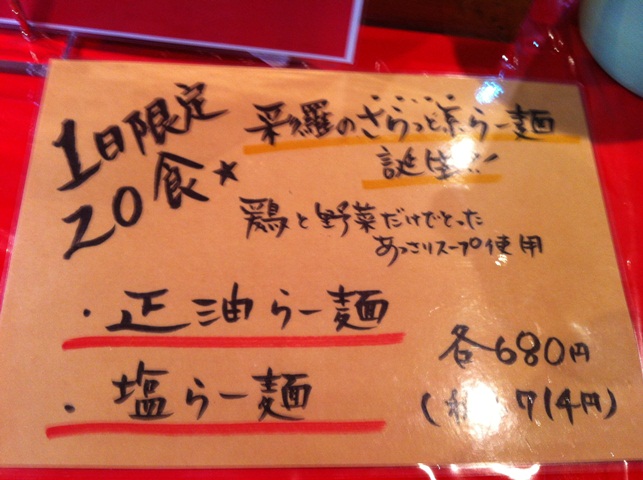 1日限定
20食★
彩羅のさらっと系らー麺
誕生!!
鶏と野菜だけでとった
あっさりスープ使用
・正油らー麺
・塩らー麺
各680円
(税 714円)